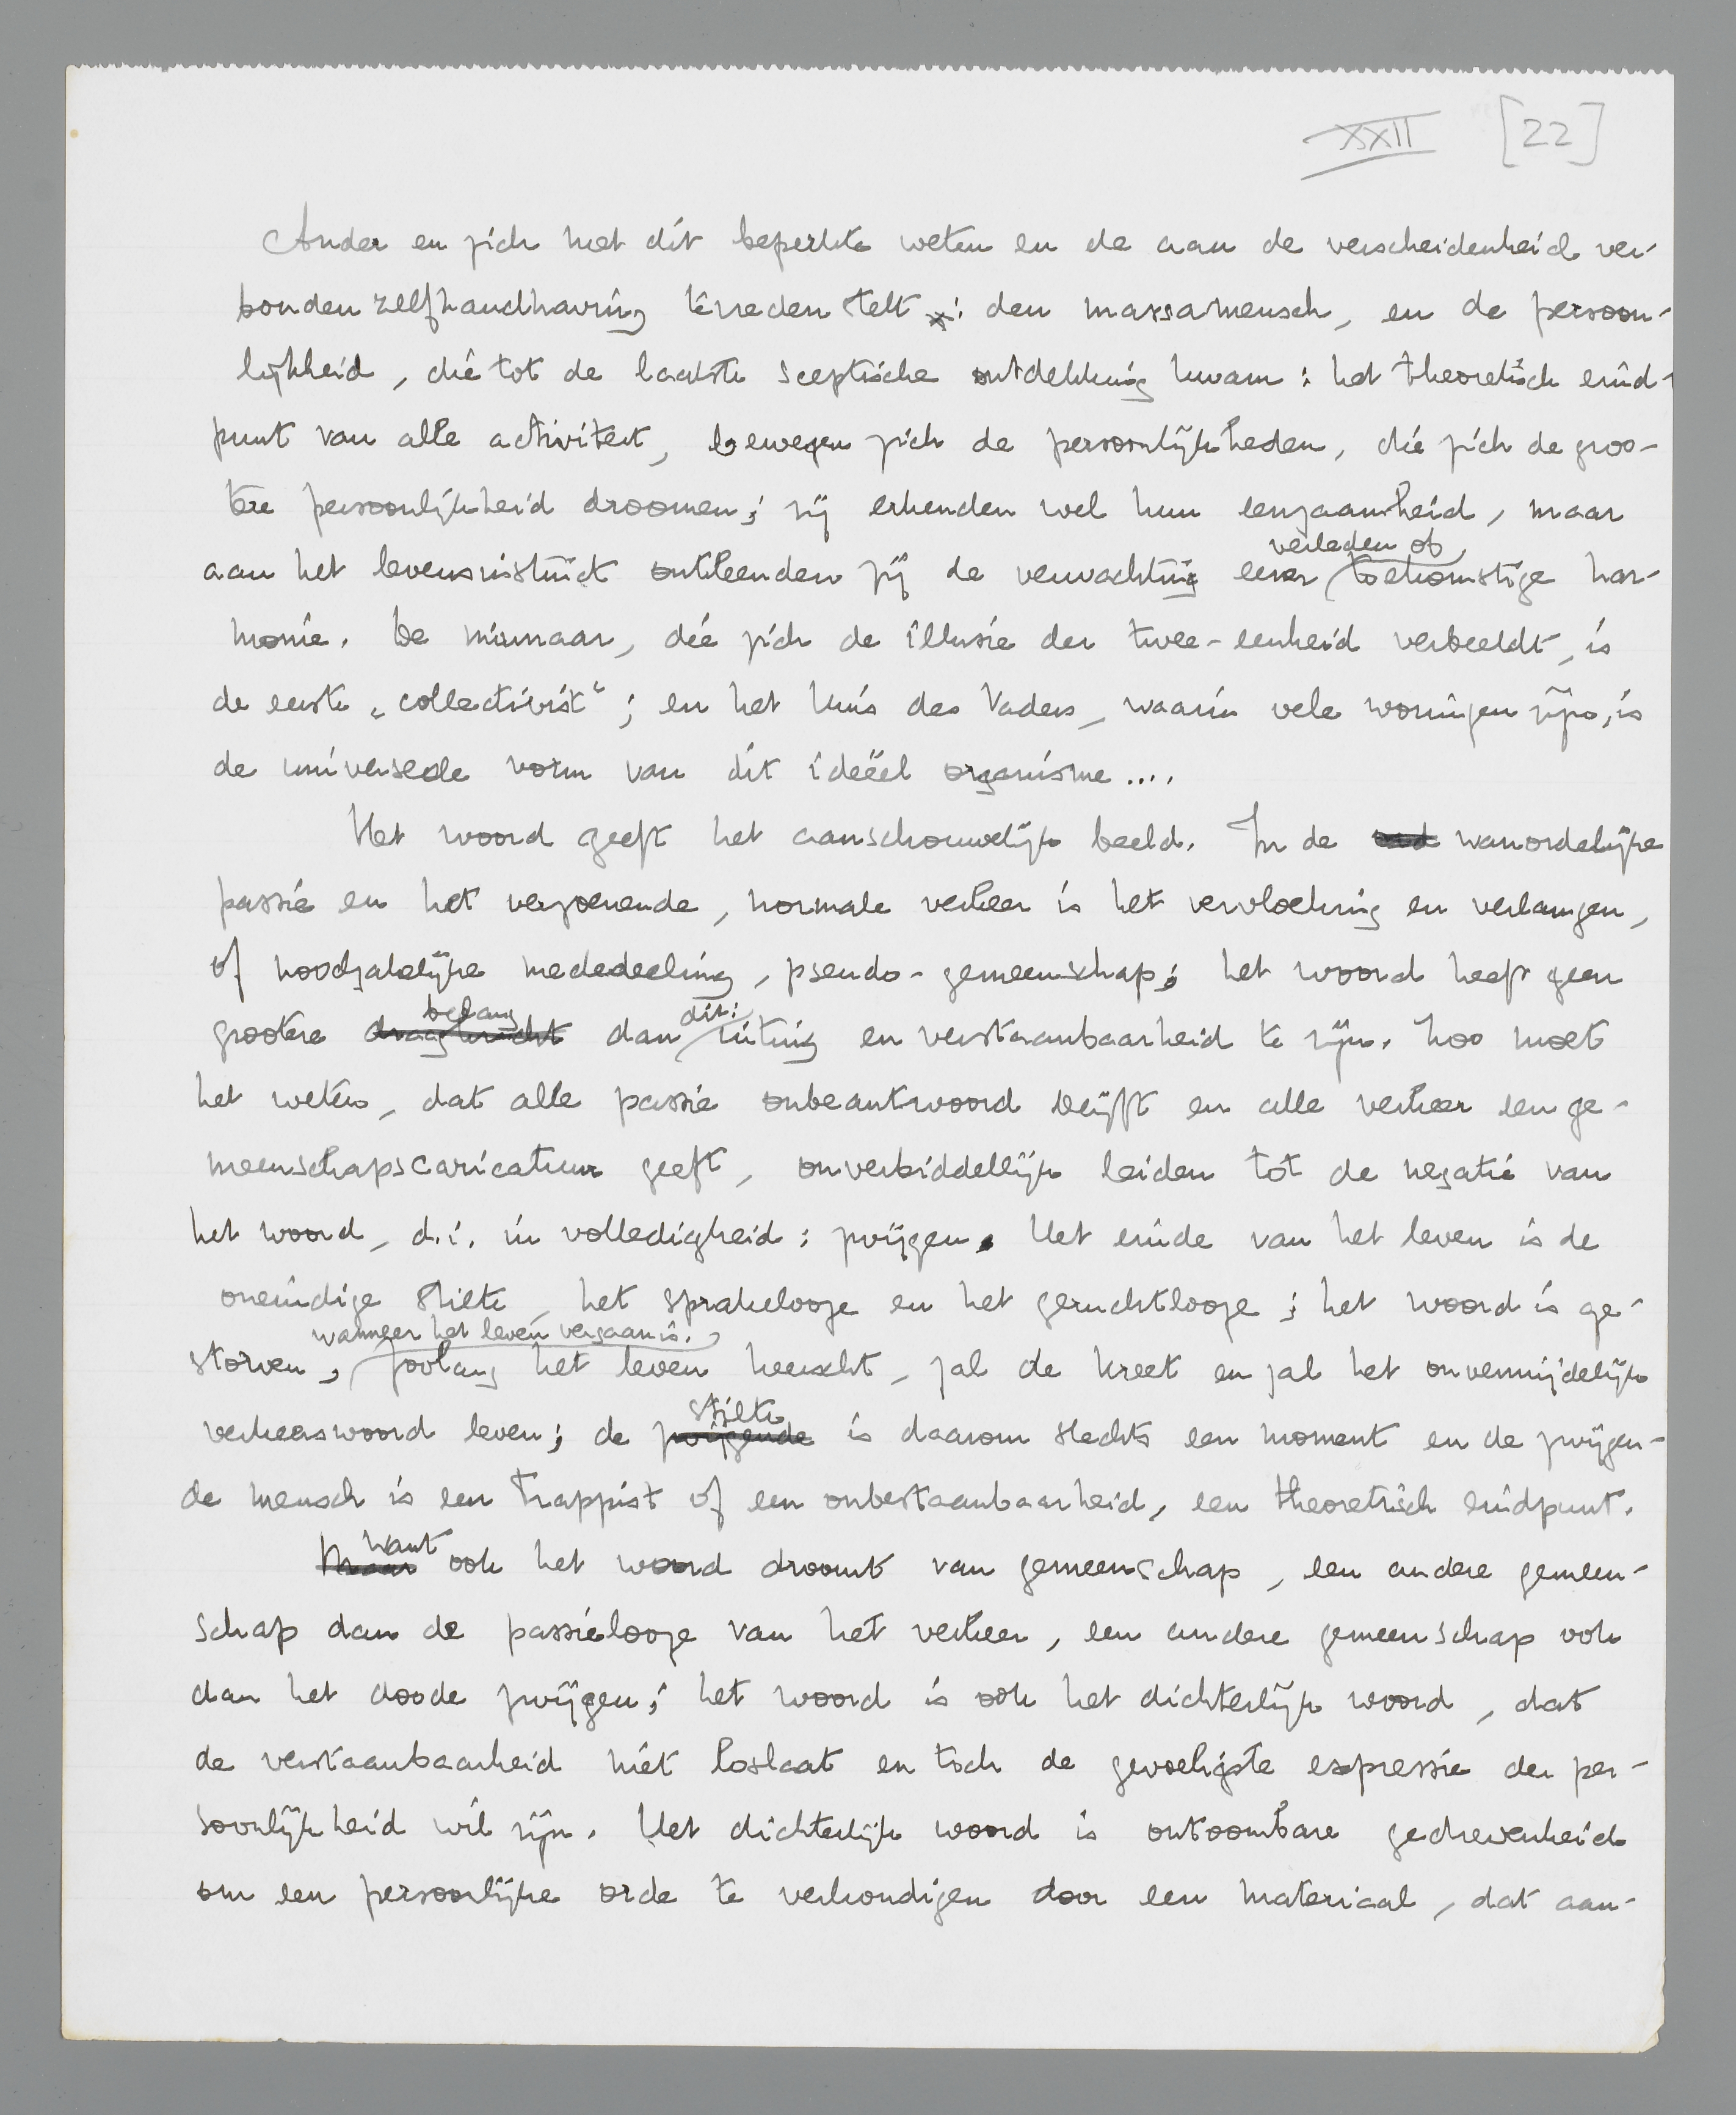 XXII [22]
Ander en zich met dit beperkte weten en de aan de verscheidenheid ver-
bonden zelfhandhaving tevreden stelt : den massamensch, en de persoon-
lijkheid, die tot de laatste sceptische ontdekking kwam : het theoretisch eind-
punt van alle activiteit, bewegen zich de persoonlijkheden, die zich de groo-
tere persoonlijkheid droomen; zij erkenden wel hun eenzaamheid, maar
aan het levensinstinct ontleenden zij de verwachting eener verleden of toekomstige har-
monie. De minnaar, die zich de illusie der twee-eenheid verbeeldt, is
de eerste „collectivist“; en het huis des Vaders, waarin vele woningen zijn, is
de universeele vorm van dit ideëel organisme....
Het woord geeft het aanschouwelijk beeld. In de wanordelijke
passie en het verzoenende, normale verkeer is het vervloeking en verlangen,
of noodzakelijke mededeeling, pseudo-gemeenschap; het woord heeft geen
grootere draagkracht belang dan dit: uiting en verstaanbaarheid te zijn. Zoo moet
het weten, dat alle passie onbeantwoord blijft en alle verkeer een ge-
meenschapscaricatuur geeft, onverbiddellijk leiden tot de negatie van
het woord, d.i. in volledigheid : zwijgen. Het einde van het leven is de
oneindige stilte, het sprakelooze en het geruchtlooze; het woord is ge-
storven, wanneer het leven vergaan is. zoolang het leven heerscht, zal de kreet en zal het onvermijdelijk
verkeerswoord leven; de zwijgende stilte is daarom slechts een moment en de zwijgen-
de mensch is een trappist of een onbestaanbaarheid, een theoretisch eindpunt.
Maar want ook het woord droomt van gemeenschap, een andere gemeen-
schap dan de passielooze van het verkeer, een andere gemeenschap ook
dan het doode zwijgen; het woord is ook het dichterlijk woord, dat
de verstaanbaarheid niet loslaat en toch de gevoeligste expressie der per-
soonlijkheid wil zijn. Het dichterlijk woord is ontoombare gedrevenheid
om een persoonlijke orde te verkondigen door een materiaal, dat aan-